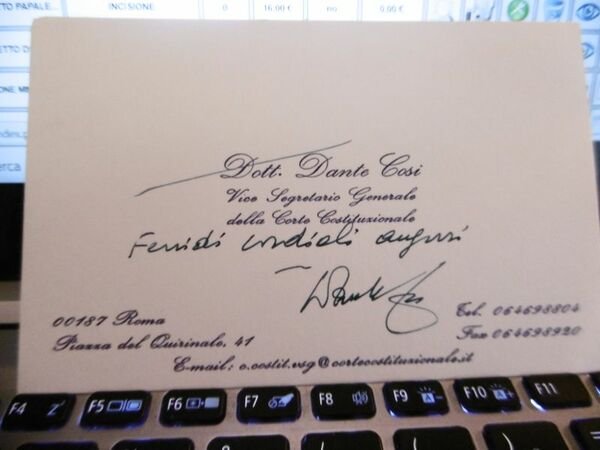 PAPALE...
INCISIONE
0
16.00 €
no
0.00 €
Dott. Dante Cosi
Vice Segretario Generale
della Corte Costituzionale
Fervidi cordiali auguri
00187 Roma
Piazza del Quirinale, 41
Tel. 064698804
Fax 064698920
Email: o.costit.vsg@cortecostituzionale.it
F4 F5 F6 F7 F8 F9 F10 F11